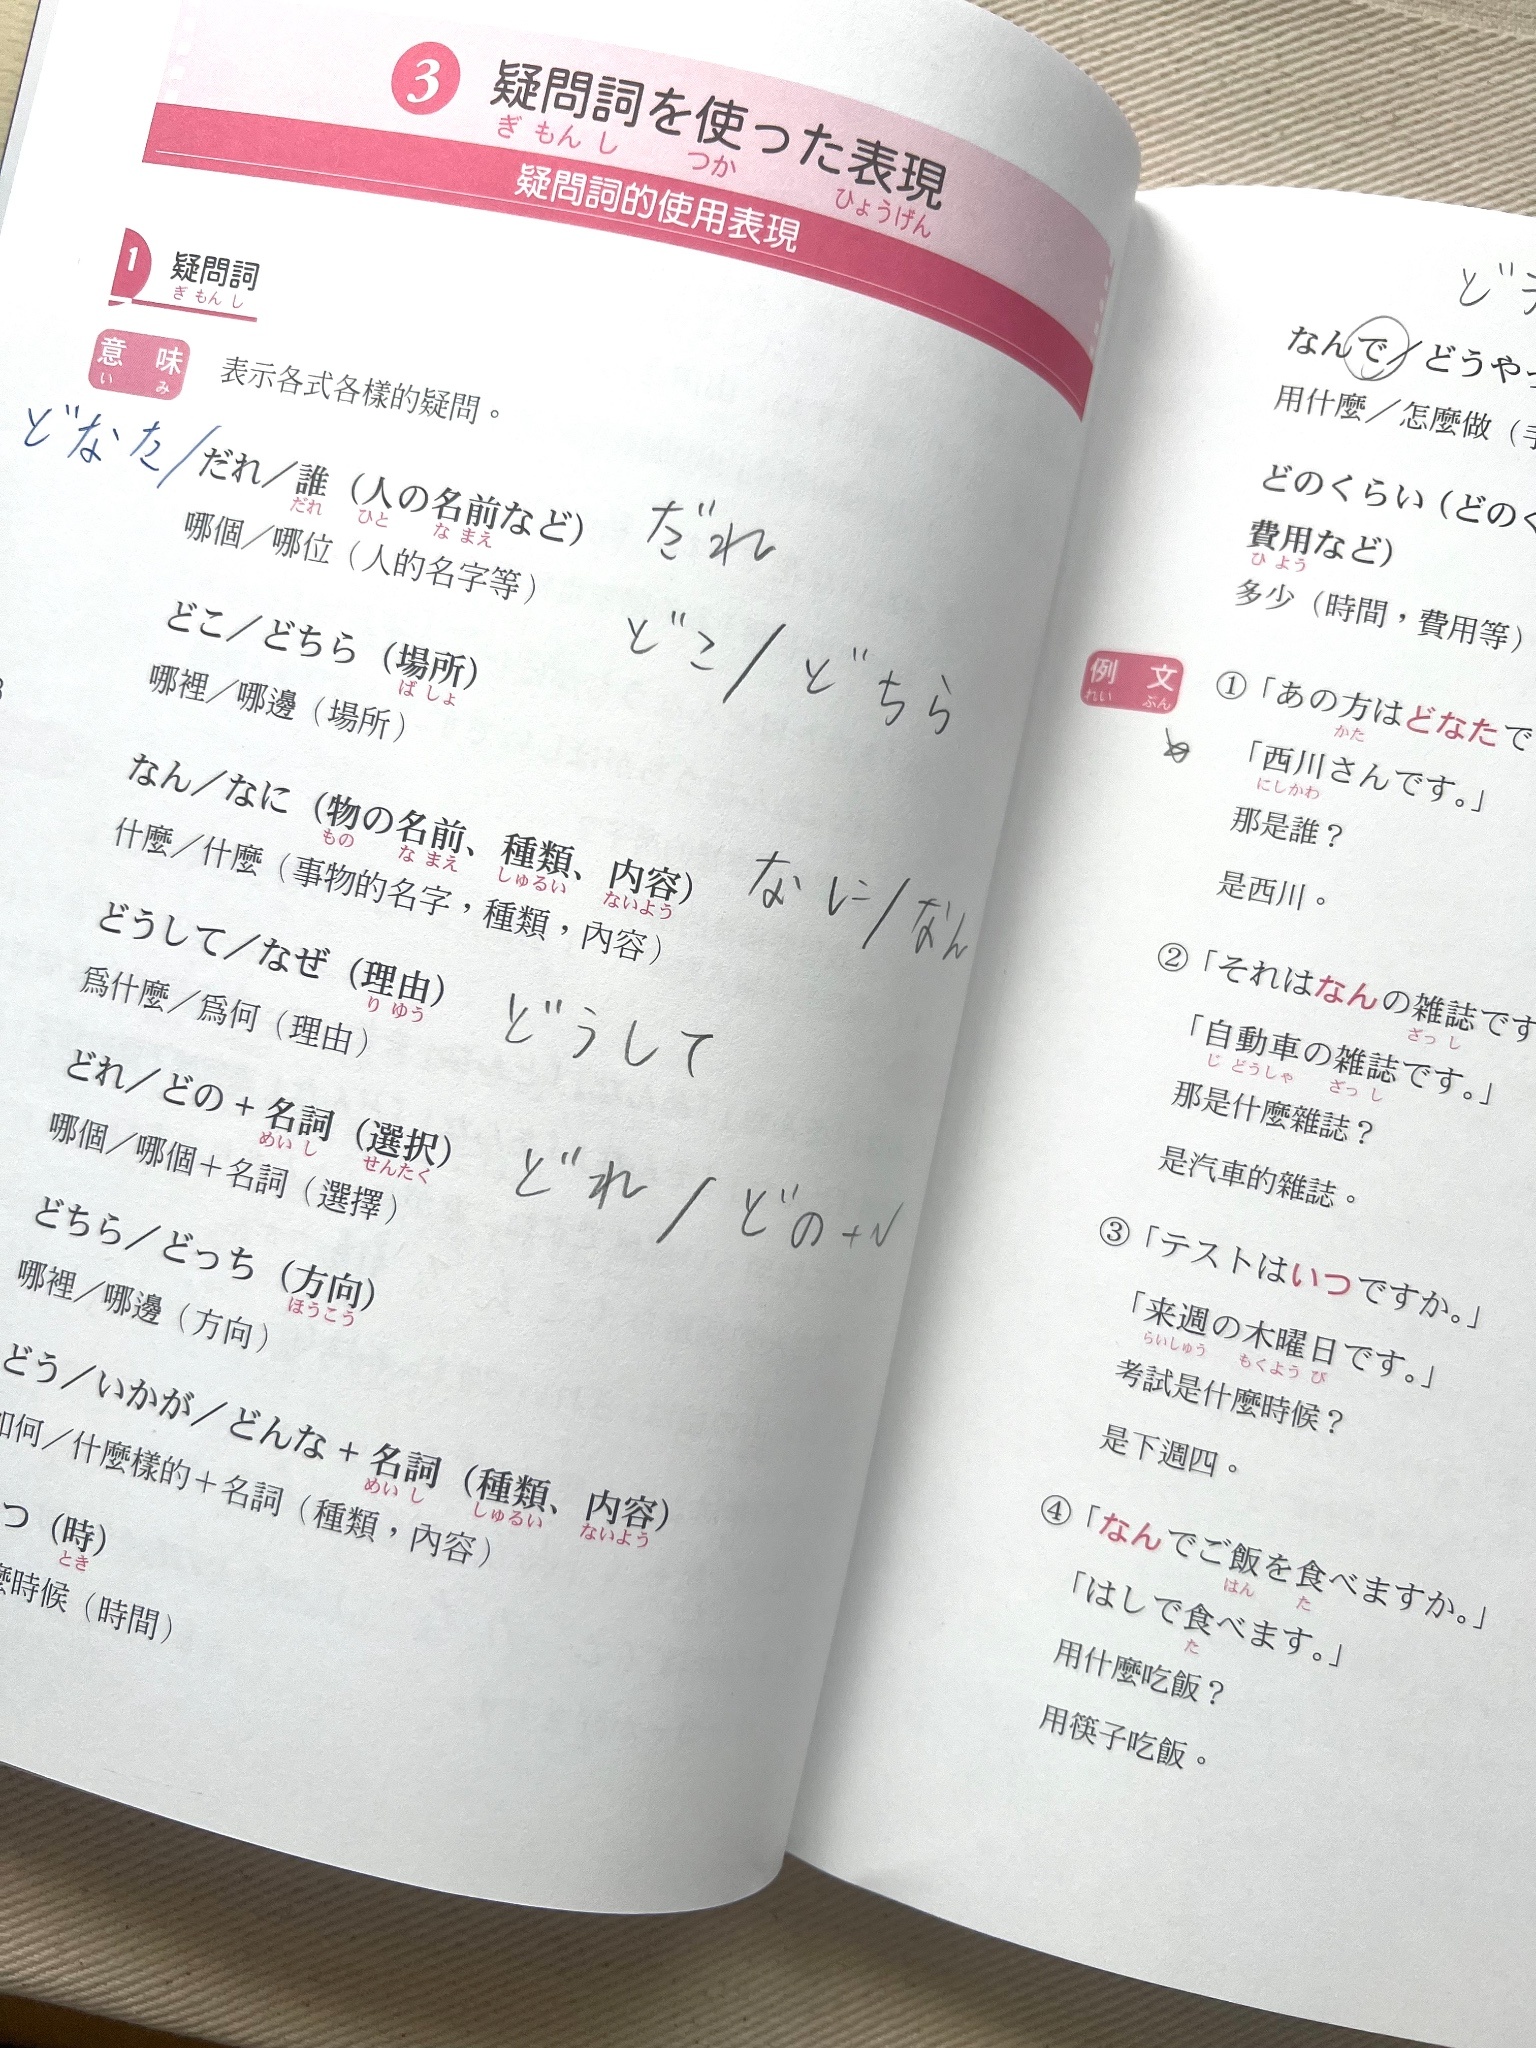 3 疑問詞を使った表現
ぎ もん し つか ひょうげん
疑問詞的使用表現
1 疑問詞
ぎ もん し
意味 表示各式各樣的疑問。
い み
どなた/だれ/誰(人の名前など) だれ
だれ ひと な まえ
哪個/哪位(人的名字等)
どこ/どちら(場所) どこ/どちら
ば しょ
哪裡/哪邊(場所)
なん/なに(物の名前、種類、内容) なに/なん
もの な まえ しゅるい ないよう
什麼/什麼(事物的名字,種類,內容)
どうして/なぜ(理由) どうして
り ゆう
爲什麼/爲何(理由)
どれ/どの+名詞(選択) どれ/どの+N
めい し せんたく
哪個/哪個+名詞(選擇)
どちら/どっち(方向)
ほうこう
哪裡/哪邊(方向)
どう/いかが/どんな+名詞(種類、内容)
めい し しゅるい ないよう
如何/什麼樣的+名詞(種類,內容)
つ(時)
とき
麼時候(時間)
なんで/どうやっ
用什麼/怎麼做(手
どのくらい(どのく
費用など)
ひ よう
多少(時間,費用等)
例文 ①「あの方はどなたで
れい ぶん かた
「西川さんです。」
にしかわ
那是誰?
是西川。
②「それはなんの雑誌です
ざっ し
「自動車の雑誌です。」
じ どうしゃ ざっ し
那是什麼雜誌?
是汽車的雜誌。
③「テストはいつですか。」
「来週の木曜日です。」
らいしゅう もくよう び
考試是什麼時候?
是下週四。
④「なんでご飯を食べますか。」
はん た
「はしで食べます。」
た
用什麼吃飯?
用筷子吃飯。